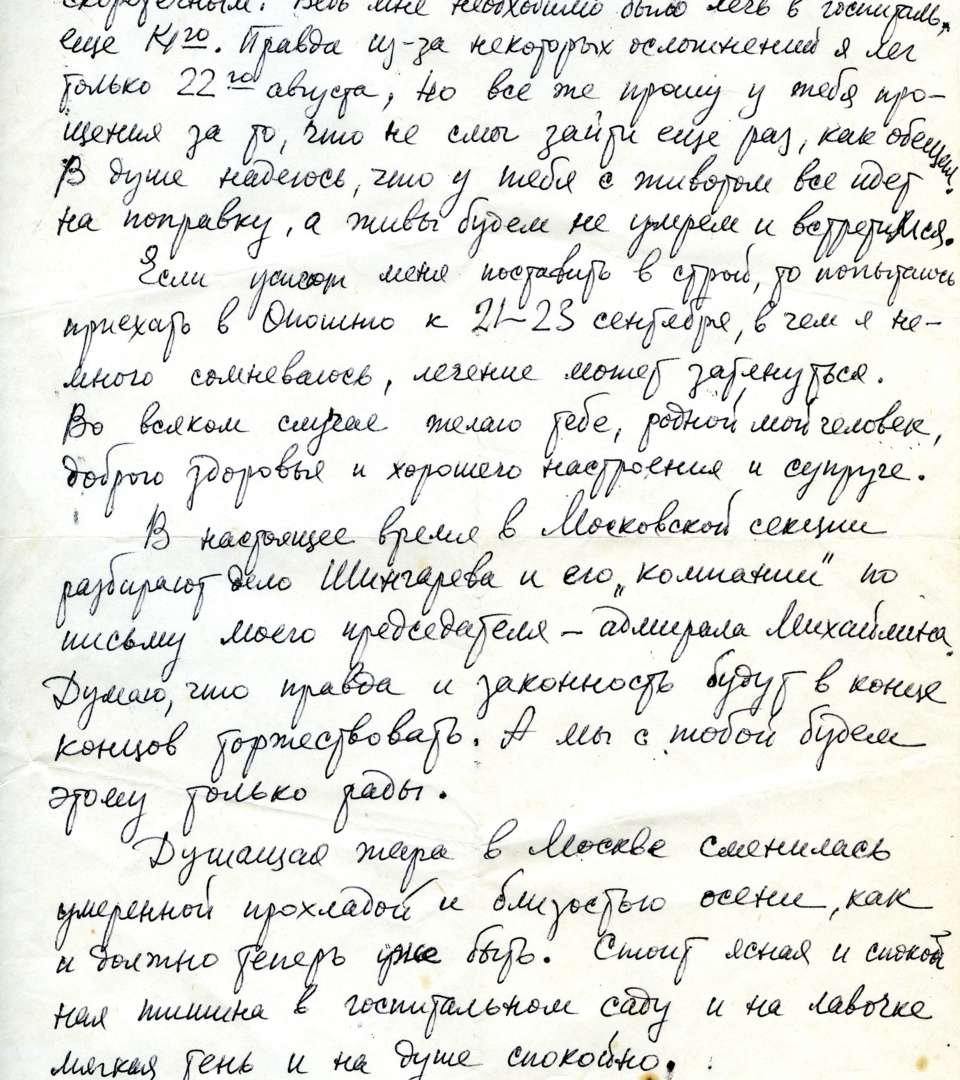 скоротечным. Ведь мне необходимо было лечь в госпиталь,
еще го. Правда из-за некоторых осложнений я лег
только 22го августа, но все же прошу у тебя про-
щения за то, что не смог зайти еще раз, как обещал.
В душе надеюсь, что у тебя с животом все идет
на поправку, а живы будем не умрем и встретимся.
Если успеют меня поставить в строй, то попытаюсь
приехать в Опошню к 21-23 сентября, в чем я не-
много сомневаюсь, лечение может затянуться.
Во всяком случае желаю тебе, родной мой человек,
доброго здоровья и хорошего настроения и супруге.
В настоящее время в Московской секции
разбирают дело Шингарева и его „компании" по
письму моего председателя – адмирала Михайлина.
Думаю, что правда и законность будут в конце
концов торжествовать. А мы с тобой будем
этому только рады.
Душащая жара в Москве сменилась
умеренной прохладой и близостью осени, как
и должно теперь уже быть. Стоит ясная и спокой
ная тишина в госпитальном саду и на лавочке
мягкая тень и на душе спокойно.